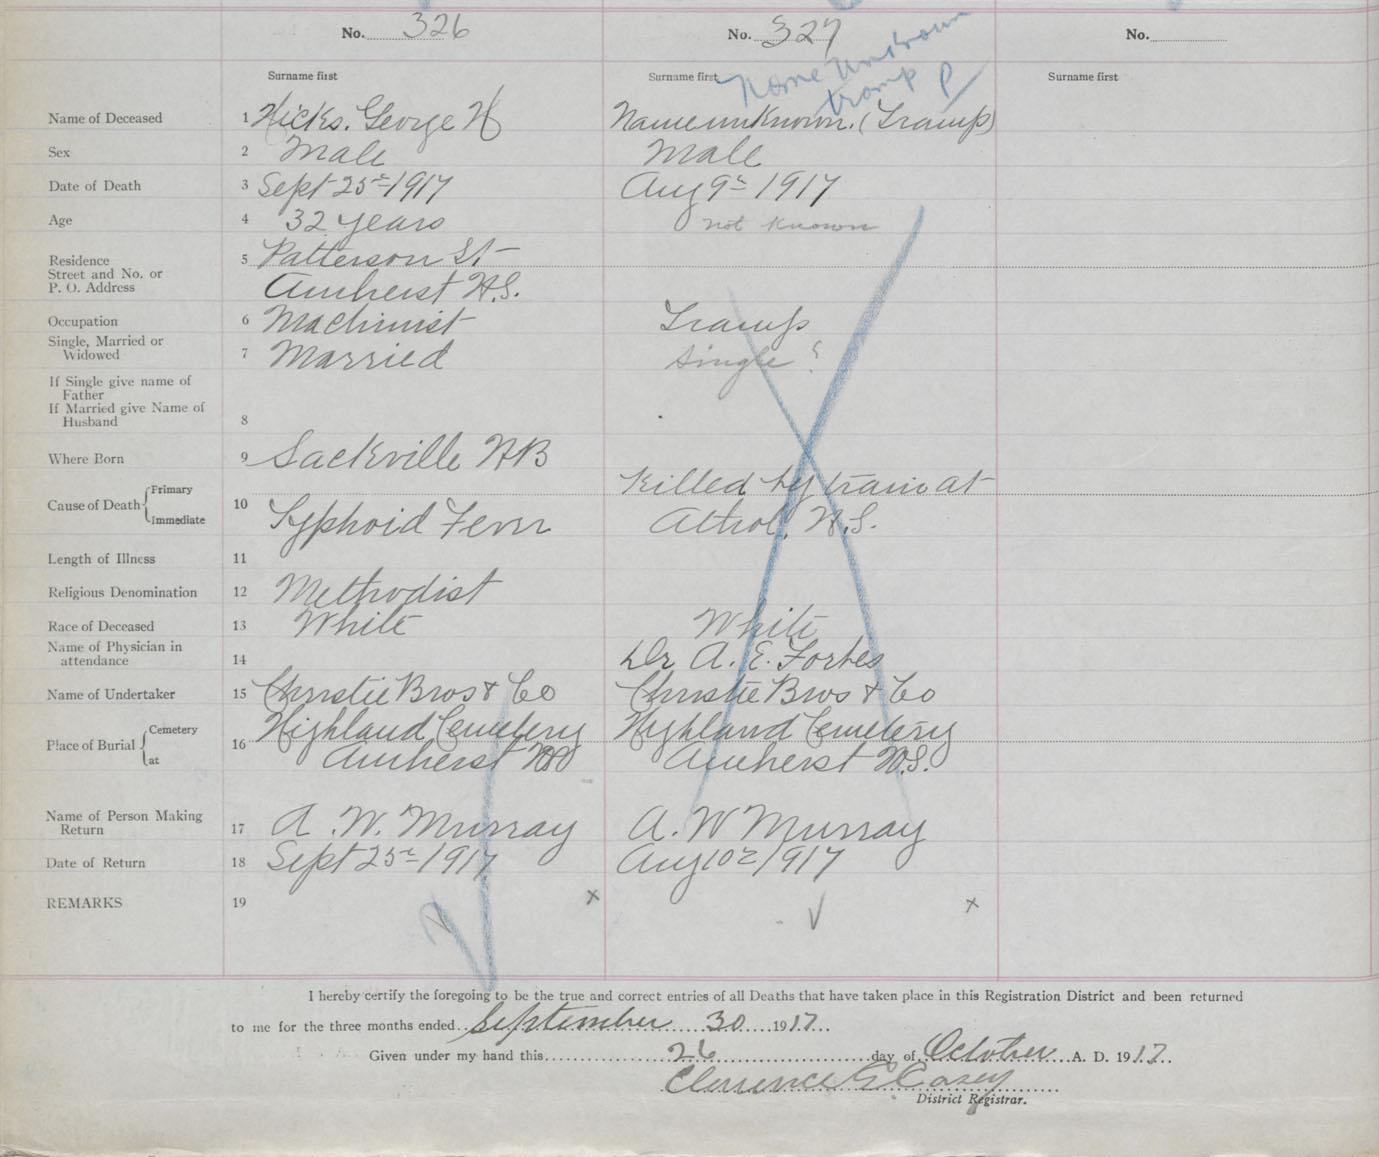 No. 326 No. 327 No.
Name Unknown
tramp P
Surname first Surname first Surname first
Name of Deceased 1 Hicks. George H Name unknown. (Tramp)
Sex 2 Male Male
Date of Death 3 Sept 25th 1917 Aug 9th 1917
Age 4 32 years not known
Residence 5 Patterson St
Street and No. or
P. O. Address Amherst N.S.
Occupation 6 Machinist Tramp
Single, Married or
Widowed 7 Married Single ?
If Single give name of
Father
If Married give Name of
Husband 8
Where Born 9 Sackville NB
Killed by train at
Cause of Death Primary
Immediate 10 Typhoid Fever Athol, N.S.
Length of Illness 11
Religious Denomination 12 Methodist
Race of Deceased 13 White White
Name of Physician in
attendance 14 Dr A. E. Forbes
Name of Undertaker 15 Christie Bros & Co Christie Bros & Co
Place of Burial Cemetery 16 Highland Cemetery Highland Cemetery
at Amherst NS Amherst N.S.
Name of Person Making
Return 17 A. W. Murray A. W Murray
Date of Return 18 Sept 25th 1917 Aug 10th 1917
REMARKS 19 x x
I hereby certify the foregoing to be the true and correct entries of all Deaths that have taken place in this Registration District and been returned
to me for the three months ended September 30 1917
Given under my hand this 26 day of October A. D. 1917
Clarence G Casey
District Registrar.